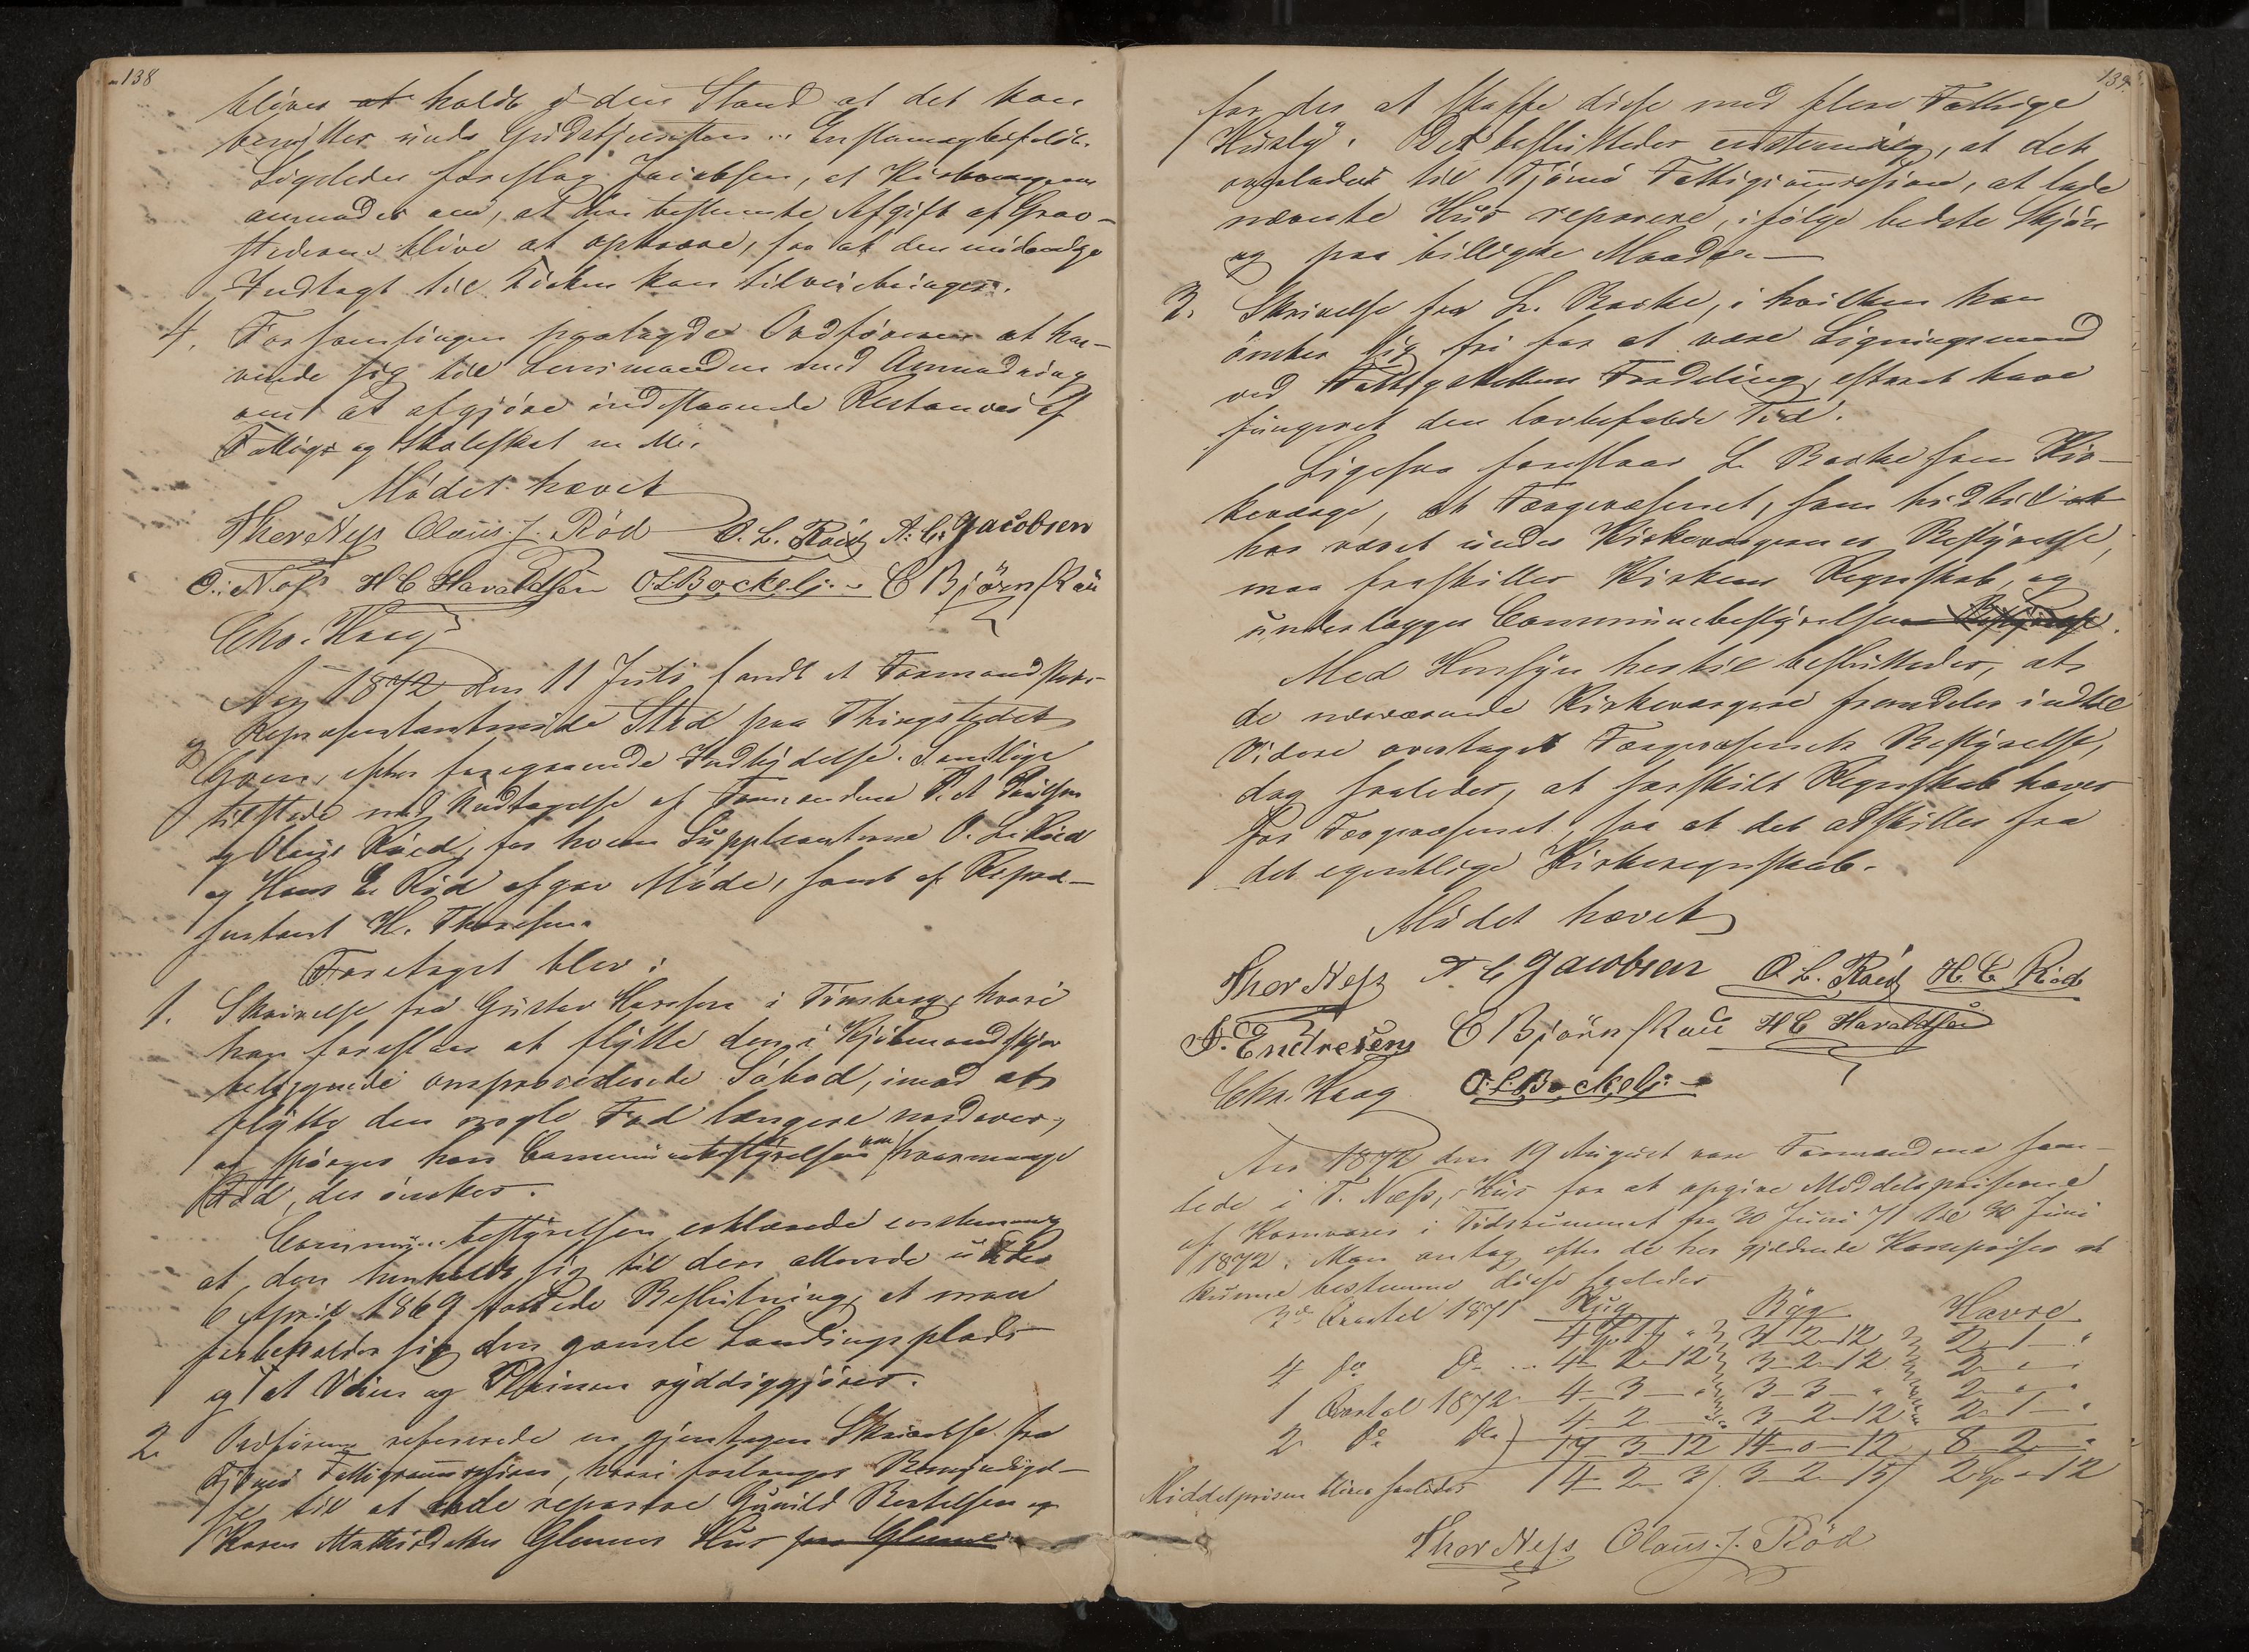 138
bliver at holdt i den Stand at det kan
benyttes under Gudstjenesten. Enstemmigt bifaldt.
Ligeledes foreslog Jacobsen, at Kirkevergerne
anmodes om, at den bestemte Afgift af Grav-
stederne blive at opkræve, saa at den nödvendige
Indtægt til Kirken kan tilveiebringes.
4. Forsamlingen paalagde Ordföreren at hen-
vende sig til Lensmanden med Anmodning
om at afgjöre indestaaende Restancer af
Fattig- og Skoleskat m. M.
Mödet hævet
Thor Næss Olaus J. Röd O. L. Röed A. C. Jacobsen
O. Næss H C Haraldsen O L Bockeli C Björnskau
Chr. Haag
Aar 1872 den 11 Juli holdt et Formandskabs-
og Repræsentantmöde Sted paa Thingstedet
Gven, efter foregaaende Indbydelse. Samtlige
tilstede med Undtagelse af Formændene
og Olaus Röed, for hvem Suppleanterne O. L. Röed
og Hans C. Röd afgav Möde, samt af Repræ-
sentant H. Thoresen.
Foretaget blev:
1. Skrivelse fra Gustav Hansen i Tönsberg, hvori
han foreslaar at flytte den i Kjöbmandskjær
beliggende Söbod, imod at
flytte den nogle Fod længere nordover,
og spörges han Communebestyrelsen om hvormange
Fod, der önskes.
Communebestyrelsen erklærede enstemmig
at den henholdt sig til den allerede under
6 April 1869 fattede Beslutning, at man
forbeholder sig den gamle Landingsplads
og at Veien og ryddiggjöres.
2 Ordföreren refererede en gjentagen Skrivelse fra
Tjömö Fattigcommission, hvori forlanges Bemyndigel-
se til at lade reparere Gunild Bertelsen og
Karen Glennes Hus paa Glenne
139.
for der at skaffe disse med flere Fattige
Huusly. Det besluttedes enstemmig, at det
overlades til Tjömö Fattigcommission, at lade
nævnte Hus reparere, ifölge bedste Skjön
og paa billigste Maade.
3. Skrivelse fra L. Backe, i hvilken han
önsker sig fri for at være Ligningsmand
ved Fattigskattens Fordeling, efterat have
fungeret den lovbefalede Tid.
Ligesaa foreslaar L. Backe som Kir-
keværge, at Færgevæsenet, som hidtil at
har været under Kirkeværgernes Bestyrelse,
maa fraskilles Kirkens Regnskab, og
underlægges Communebestyrelsens Bestyrelse.
Med Hensyn hertil besluttedes, at
de nuværende Kirkeværger fremdeles indtil
Videre overtaget Færgevæsenets Bestyrelse,
dog saaledes, at særskilt Regnskab haves
for Færgevæsenet, saa at det adskilles fra
det egentlige Kirkeregnskab.
Mödet hævet
Thor Næss A C Jacobsen O. L. Röed H. C. Röd
A. Endresen C Björnskau H C Haraldsen
Chr. Haag O. L. Bockeli
Aar 1872 den 19 August vare Formændene sam-
lede i T. Næss, Hus for at opgive Middelpriserne
af Kornvarer i Tidsrummet fra 30 Juni 71 til 30 Juni
1872. Man antog efter de her gjældende Kornpriser at
kunne bestemme disse saaledes
Rug Byg Havre
3de Qvartal 1871 4 1 " 3 2 12 2 1 "
4 Do Do 4 2 12 3 2 12 2 " "
1 Qvartal 1872 4 3 " 3 3 " 2 " "
2 Do Do 4 2 " 3 2 12 2 1 "
17 3 12 14 0 12 8 2 "
Middelprisen bliver saaledes 4 2 3/ 3 2 15/ 2 " 12
Thor Næss Olaus. J. Röd